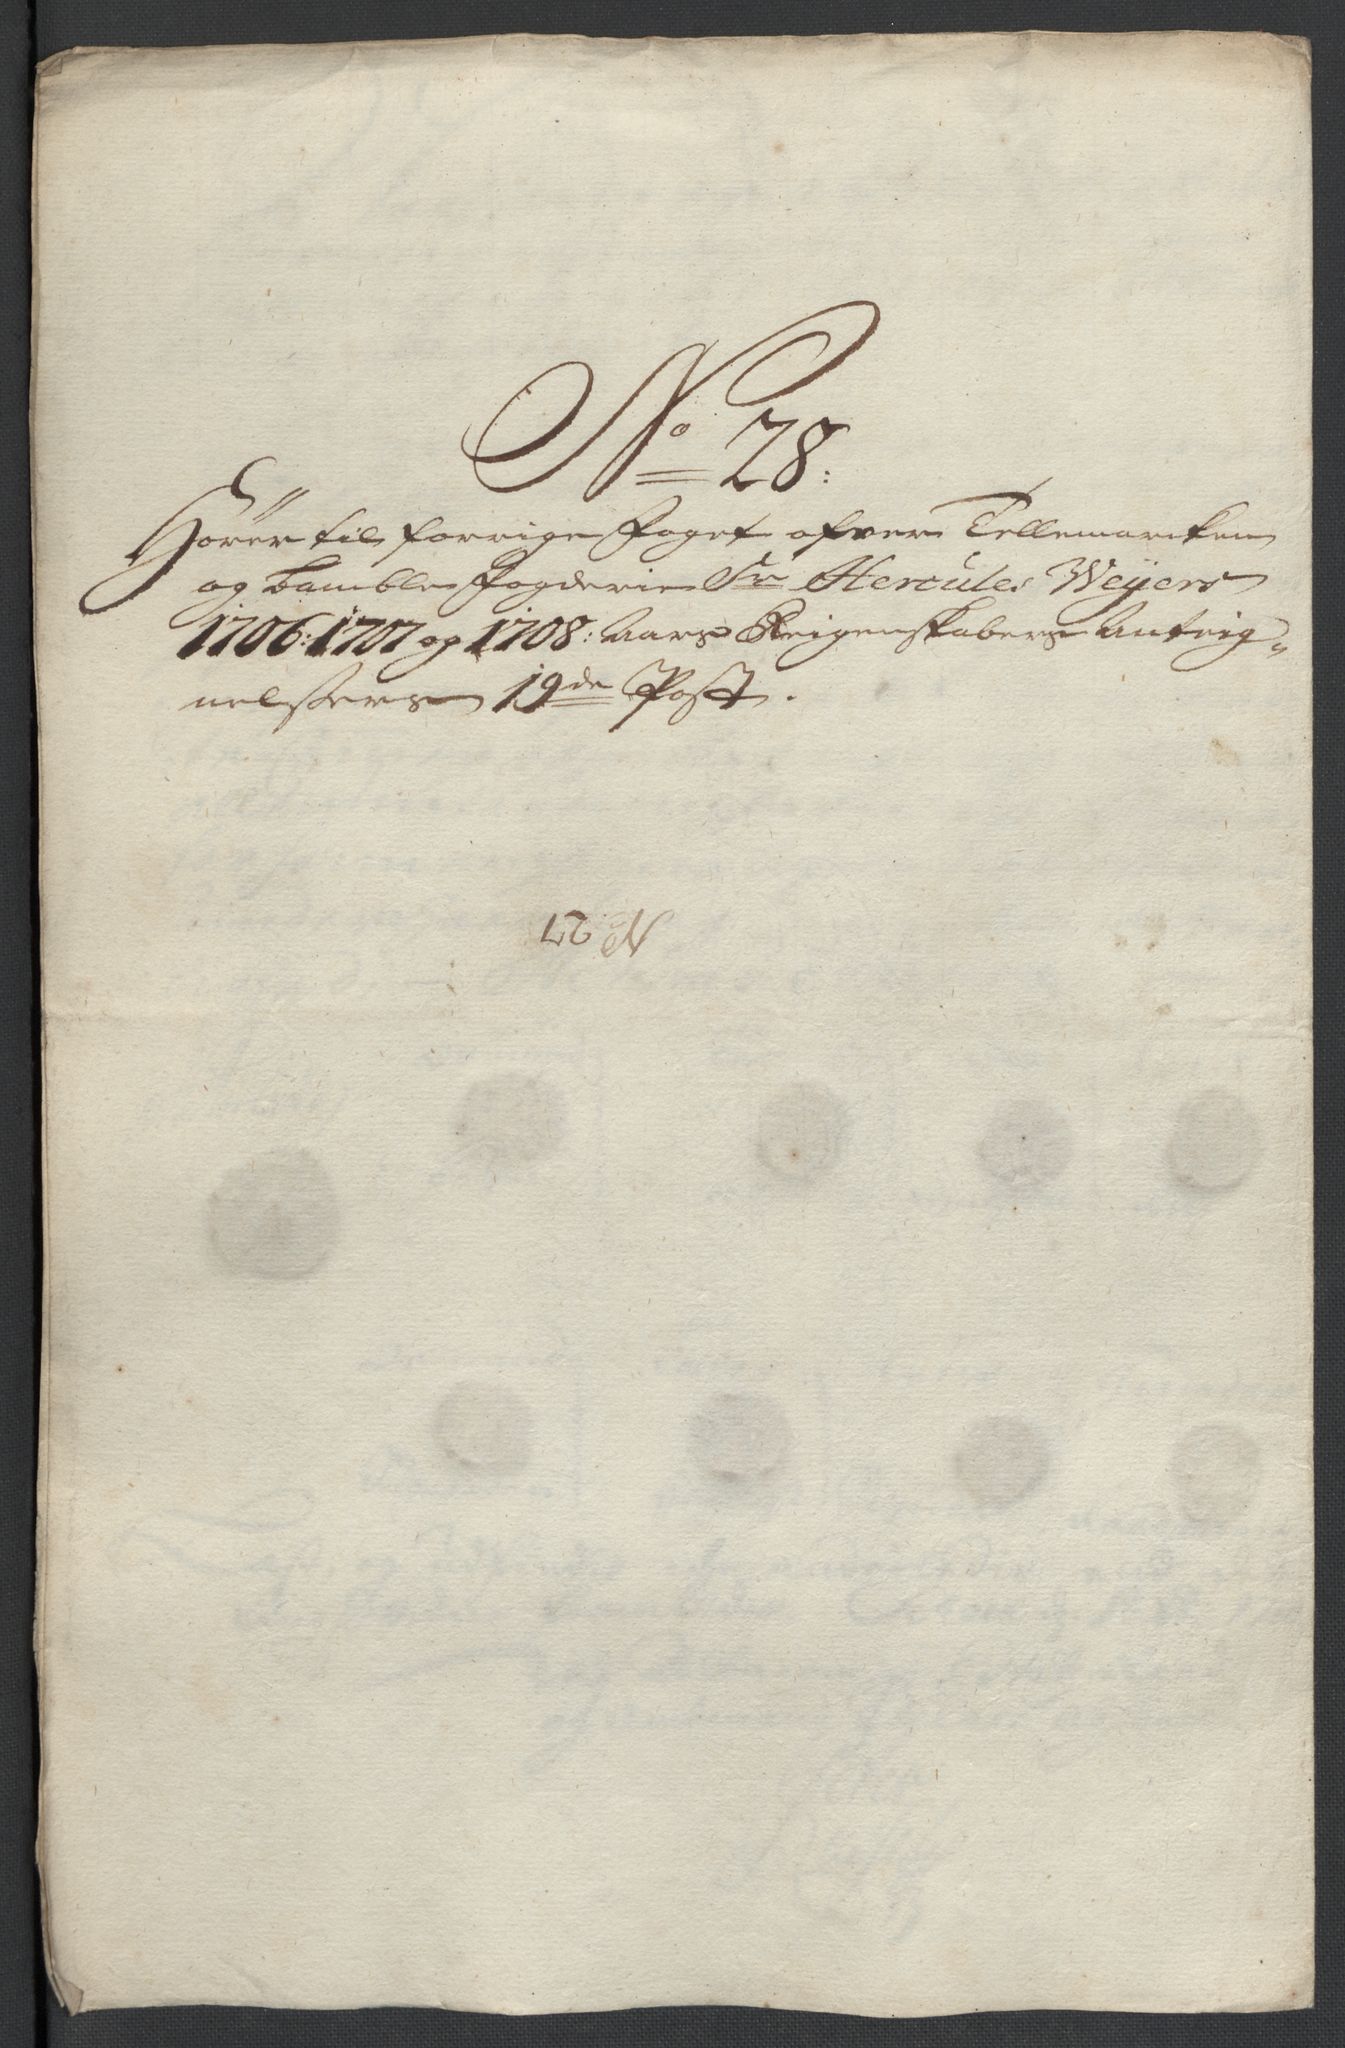 No 28:
Hörer til forrige Foget ofver Tellemarcken
og Bamble Fogderie Sr Hercules Weyers
1706: 1707 og 1708: Aars Reigenskabers Anteig-
nelssers 19de Post.
No 27